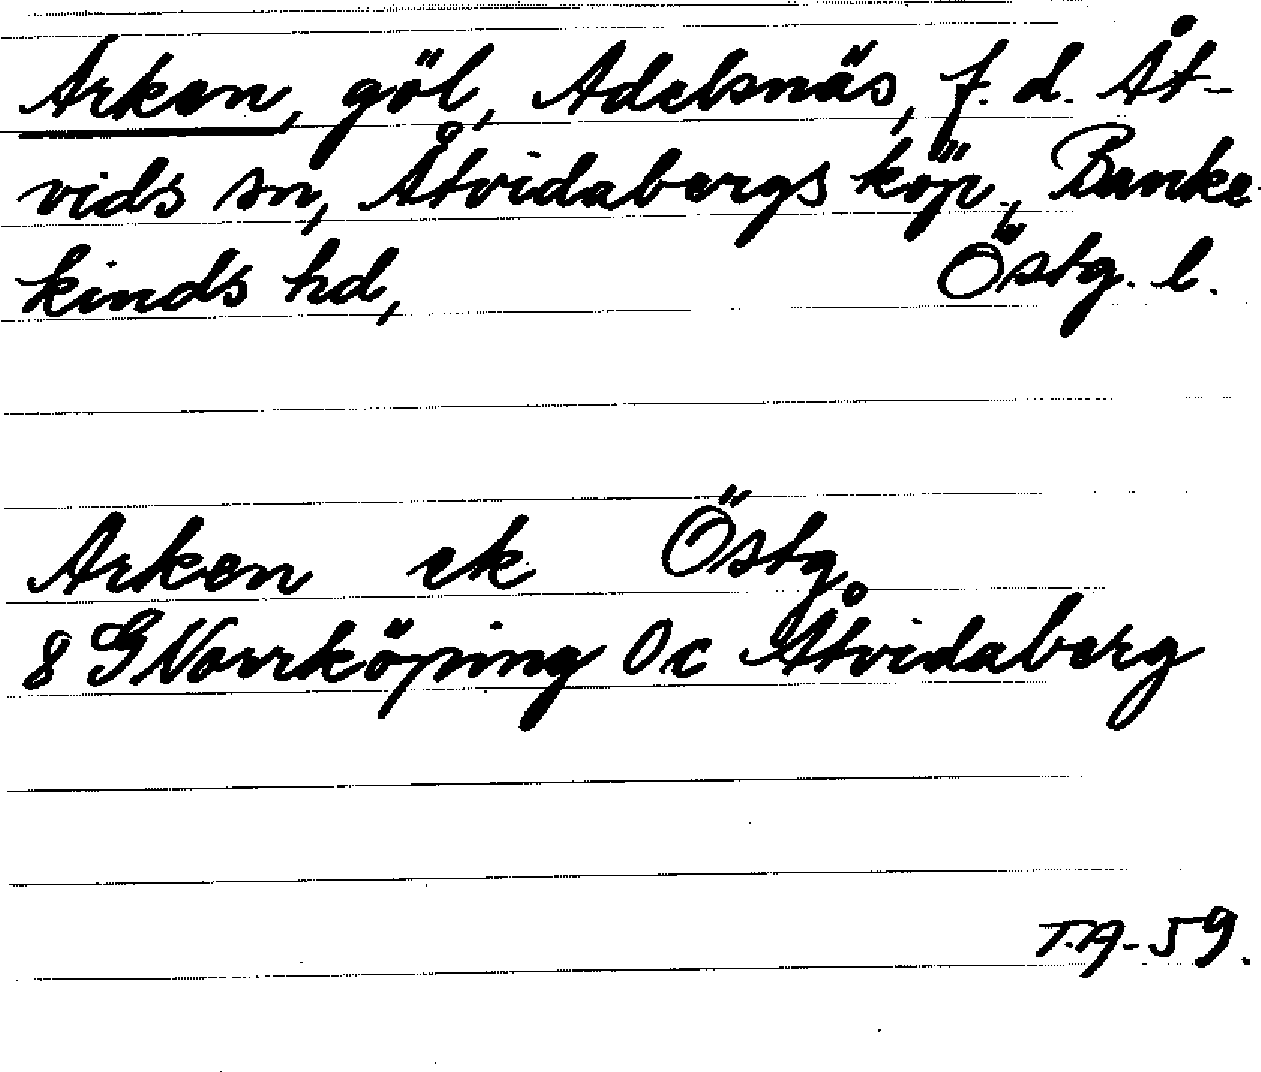 Arken, göl, Adelsnäs, f. d. Åt-
vids sn, Åtvidabergs köp., Banke
kinds hd, Östg. l.
Arken ek Östg.
8 G Norrköping 0c Åtvidaberg
T.A-59.